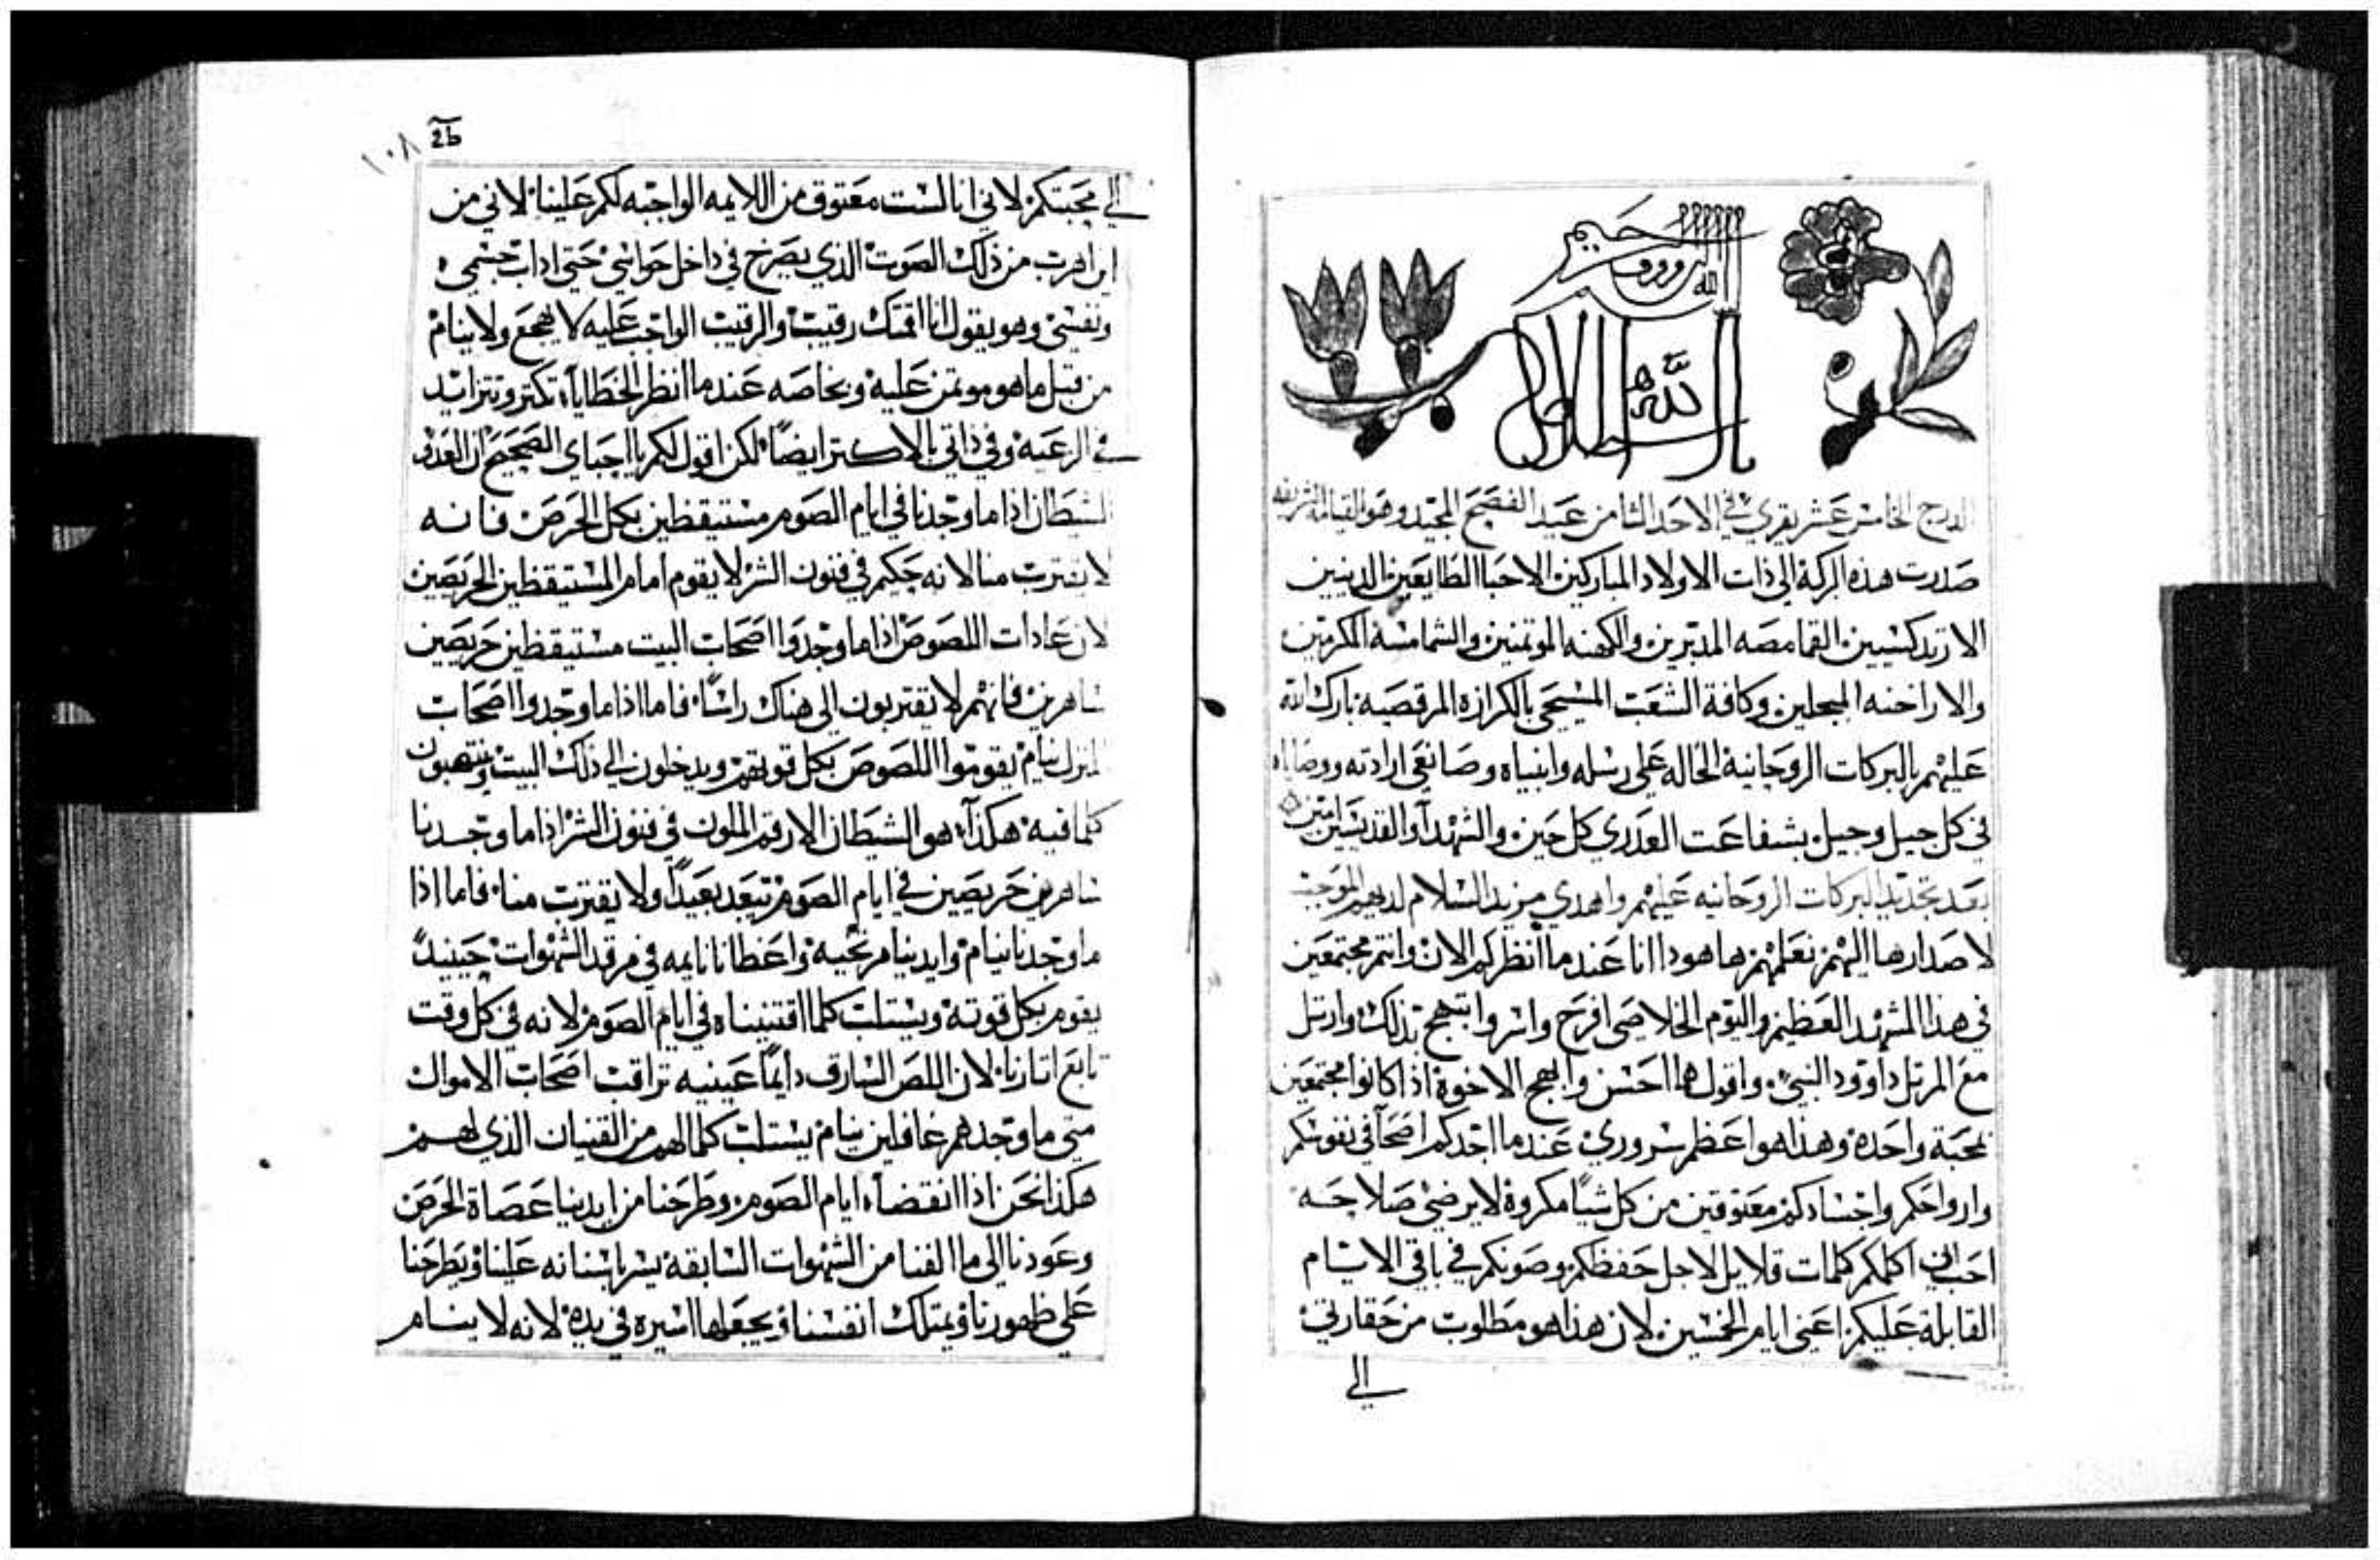 الله الرووف الرحيم
الدرج الخامس عشر يقري في الاحد الثامن عيد الفصح المجيد وهو القيامة الشريفه
صدرت هذه البركة الي ذات الاولاد المباركين الاحبا الطايعين الدينين
الارتدكسيين القمامصه المدبرين والكهنه الموتمنين والشمامسة المكرمين
والاراخنه المبجلين وكافة الشعب المسيحي بالكرازه المرقصية بارك الله
عليهم بالبركات الروحانية الحاله علي رسله وانبياه وصانعي ارادته ووصاياه
في كل جيل وجيل بشفاعت العدري كل حين والشهدآ والقديسين امين
بعد تجديد البركات الروحانيه عليهم واهدي مزيد السلام لديهم الموجب
لاصدارها اليهم نعلمهم هاهودا انا عندما انظركم الان وانتم مجتمعين
في هذا المشهد العظيم واليوم الخلاصي افرح واسر وابتهج بذلك وارتل
مع المرتل داوود النبي واقول ما احسن وابهج الاخوة اذا كانوا مجتمعين
بمحبة واحدة وهذا هو اعظم سروري عندما اجدكم اصحآ في نفوسكم
وارواحكم واجسادكم معتوقين من كل شيآ مكروة لا يرضي صلاحه
احب اني اكلمكم كلمات قلايل لاجل حفظكم وصونكم في باقي الايام
القابلة عليكم اعني ايام الخمسين لان هذا هو مطلوب من حقارتي
الي
2b
١٠٨
الي محبتكم لاني انا لست معتوق من اللايمه الواجبه لكم علينا لاني من
اين اهرب من ذلك الصوت الذي يصرخ في داخل حواسي حتي اداب جسمي
ونفسي وهو يقول انا اقمتك رقيب والرقيب الواجب عليه لا يهجع ولا ينام
من قبل ما هو موتمن عليه وبخاصه عندما انظر الخطايآ تكتر وتتزايد
في الرعيه وفي ذاتي بالاكتر ايضاً لكن اقول لكم يا احباي الصحيح ان العدو
الشطان اذا ما وجدنا في ايام الصوم مستيقظين بكل الحرص فانه
لا يقترب منا لانه حكيم في فنون الشر لا يقوم امام المستيقظين الحريصين
لان عادات اللصوص اذا ما وجدوا اصحاب البيت مستيقظين حريصين
ساهرين فانهم لا يقتربون الي هناك راساً فاما اذا ما وجدوا اصحاب
المنزل نيام يقوموا اللصوص بكل قوتهم ويدخلون الي ذلك البيت وينتهبون
كلما فيه هكذآ هو الشيطان الارقم الملون في فنون الشر اذا ما وجدنا
ساهرين حريصين في ايام الصوم تبعد بعيداً ولا يقترب منا فاما اذا
ما وجدنا نيام وايدينا مرتخيه واعظانا نايمه في مرقد الشهوات حينيدً
يقوم بكل قوته ويستلب كلما اقتنيناه في ايام الصوم لانه في كل وقت
تابع اتارنا لان اللص السارق دايماً عينيه تراقب اصحاب الاموال
متي ما وجدهم غافلين نيام يستلب كمالهم من القنيان الذي لهم
هكذا نحن اذا انقضاء ايام الصوم وطرحنا من ايدينا عصاة الحرص
وعودنا الي ما الفنا من الشهوات السابقة يشر باسنانه علينا ويطرحنا
علي ظهورنا ويمتلك انفسنا ويجعلها اسيره في يده لانه لا ينام